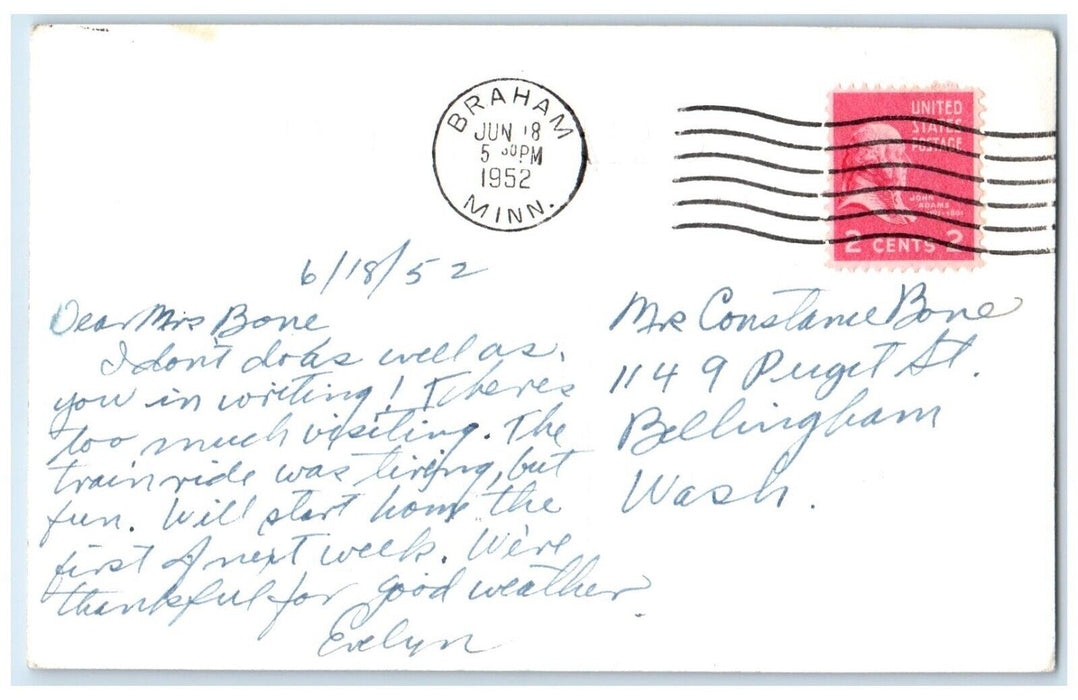 BRAHAM
JUN 18
5 30 PM
1952
MINN.
UNITED
STATES
POSTAGE
JOHN
ADAMS
2 CENTS 2
6/18/52
Dear Mrs Bone
I don't do as well as
you in writing! Theres
too much visiting. The
train ride was tiring, but
fun. Will start home the
first of next week. We're
thankful for good weather
Evelyn
Mrs Constance Bone
1149 Puget St.
Bellingham
Wash.